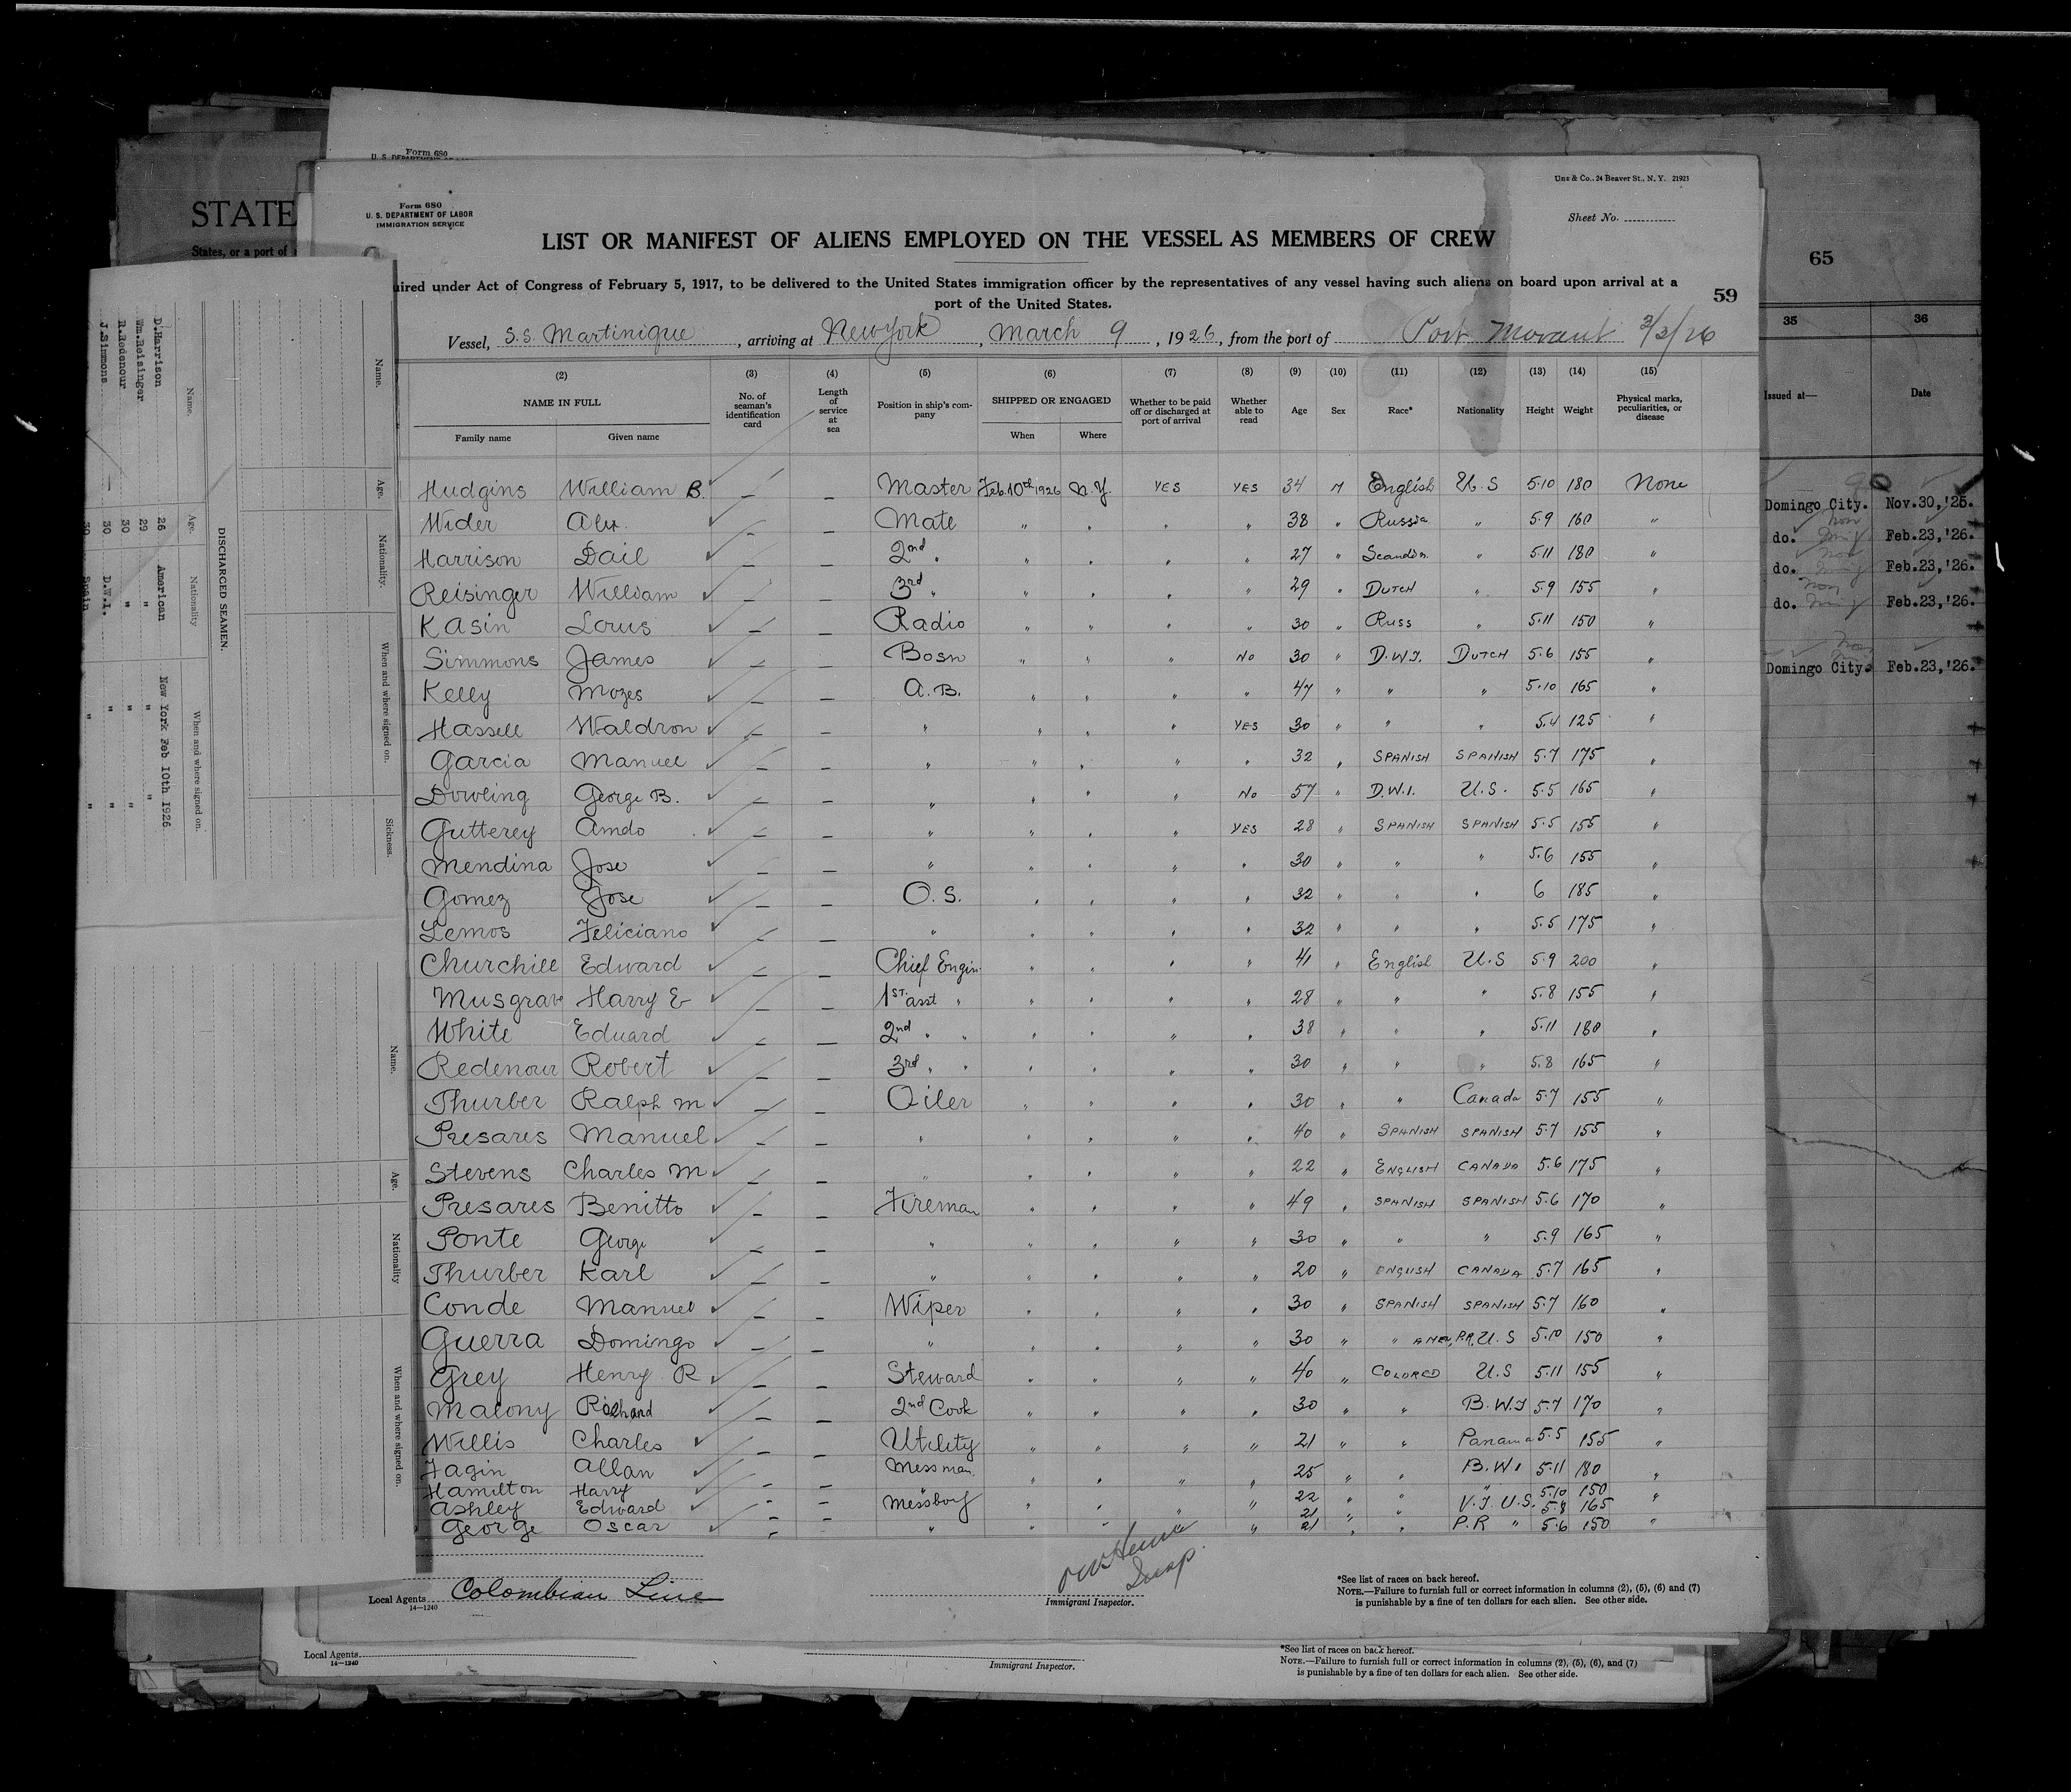 Form 680
STATE
States, or a port of
Une & Co., 24 Beaver St., N. Y. 21923
Form 680
U. S. DEPARTMENT OF LABOR
IMMIGRATION SERVICE
Sheet No.
LIST OR MANIFEST OF ALIENS EMPLOYED ON THE VESSEL AS MEMBERS OF CREW
uired under Act of Congress of February 5, 1917, to be delivered to the United States immigration officer by the representatives of any vessel having such aliens on board upon arrival at a
port of the United States.
59
65
Vessel, S.S. Martinique, arriving at New York, March 9, 1926, from the port of Port Morant 3/3/26
(2) (3) (4) (5) (6) (7) (8) (9) (10) (11) (12) (13) (14) (15)
NAME IN FULL No. of seaman's identification card Length of service at sea Position in ship's company SHIPPED OR ENGAGED Whether to be paid off or discharged at port of arrival Whether able to read Age Sex Race* Nationality Height Weight Physical marks, peculiarities, or disease
Family name Given name When Where
Hudgins William B. — — Master Feb. 10th 1926 N.Y. YES YES 34 M English U.S 5.10 180 None
Wider Alex. — — Mate " " " " 38 " Russia " 5.9 160 "
Harrison Dail — — 2nd " " " " " 27 " Scandin. " 5.11 180 "
Reisinger William — — 3rd " " " " " 29 " DUTCH " 5.9 155 "
Kasin Lorus — — Radio " " " " 30 " Russ " 5.11 150 "
Simmons James — — Bosn " " " No 30 " D.W.I. DUTCH 5.6 155 "
Kelly Mozes — — A.B. " " " " 47 " " " 5.10 165 "
Hassell Waldron — — " " " " YES 30 " " " 5.4 125 "
Garcia Manuel — — " " " " " 32 " SPANISH SPANISH 5.7 175 "
Dowling George B. — — " " " " No 57 " D.W.I. U.S. 5.5 165 "
Gutterey Amdo — — " " " " YES 28 " SPANISH SPANISH 5.5 155 "
Mendina Jose — — " " " " " 30 " " " 5.6 155 "
Gomez Jose — — O.S. " " " " 32 " " " 6 185 "
Lemos Feliciano — — " " " " " 32 " " " 5.5 175 "
Churchill Edward — — Chief Engin. " " " " 41 " English U.S 5.9 200 "
Musgrave Harry E — — 1ST. asst " " " " " 28 " " " 5.8 155 "
White Edward — — 2nd " " " " " " 38 " " " 5.11 180 "
Redenour Robert — — 3rd " " " " " " 30 " " " 5.8 165 "
Thurber Ralph M — — Oiler " " " " 30 " " Canada 5.7 155 "
Presares Manuel — — " " " " " 40 " SPANISH SPANISH 5.7 155 "
Stevens Charles M — — " " " " " 22 " ENGLISH CANADA 5.6 175 "
Presares Benitto — — Fireman " " " " 49 " SPANISH SPANISH 5.6 170 "
Ponte George — — " " " " " 30 " " " 5.9 165 "
Thurber Karl — — " " " " " 20 " ENGLISH CANADA 5.7 165 "
Conde Manuel — — Wiper " " " " 30 " SPANISH SPANISH 5.7 160 "
Guerra Domingo — — " " " " " 30 " " P.R. U.S 5.10 150 "
Grey Henry R — — Steward " " " " 40 " COLORED U.S 5.11 155 "
Malony Richard — — 2nd Cook " " " " 30 " " B.W.I 5.7 170 "
Willis Charles — — Utility " " " " 21 " " Panama 5.5 155 "
Fagin Allan — — Messman " " " " 25 " " B.W.I 5.11 180 "
Hamilton Harry — — " 22 " " " 5.10 150 "
Ashley Edward — — Messboy " " " " 21 " " V.I. U.S. 5.8 165
George Oscar — — " " " " 21 " " P.R " 5.6 150 "
Local Agents Colombian Line
14—1240
Insp.
Immigrant Inspector.
*See list of races on back hereof.
NOTE.—Failure to furnish full or correct information in columns (2), (5), (6) and (7)
is punishable by a fine of ten dollars for each alien. See other side.
Local Agents
14—1240
Immigrant Inspector.
*See list of races on back hereof.
NOTE.—Failure to furnish full or correct information in columns (2), (5), (6), and (7)
is punishable by a fine of ten dollars for each alien. See other side.
35 36
Issued at— Date
Domingo City. Nov.30,'25.
do. Feb.23,'26.
do. Feb.23,'26.
do. Feb.23,'26.
Domingo City. Feb.23,'26.
DISCHARGED SEAMEN.
Name. Age. Nationality When and where signed on.
D.Harrison 26 American New York Feb 10th 1926
Wm.Reisinger 29 " " "
R.Redenour 30 " " "
J.Simmons 30 D.W.I. " "
30 Spain " "
Name. Age. Nationality. When and where signed on. Sickness.
Name. Age. Nationality When and where signed on.